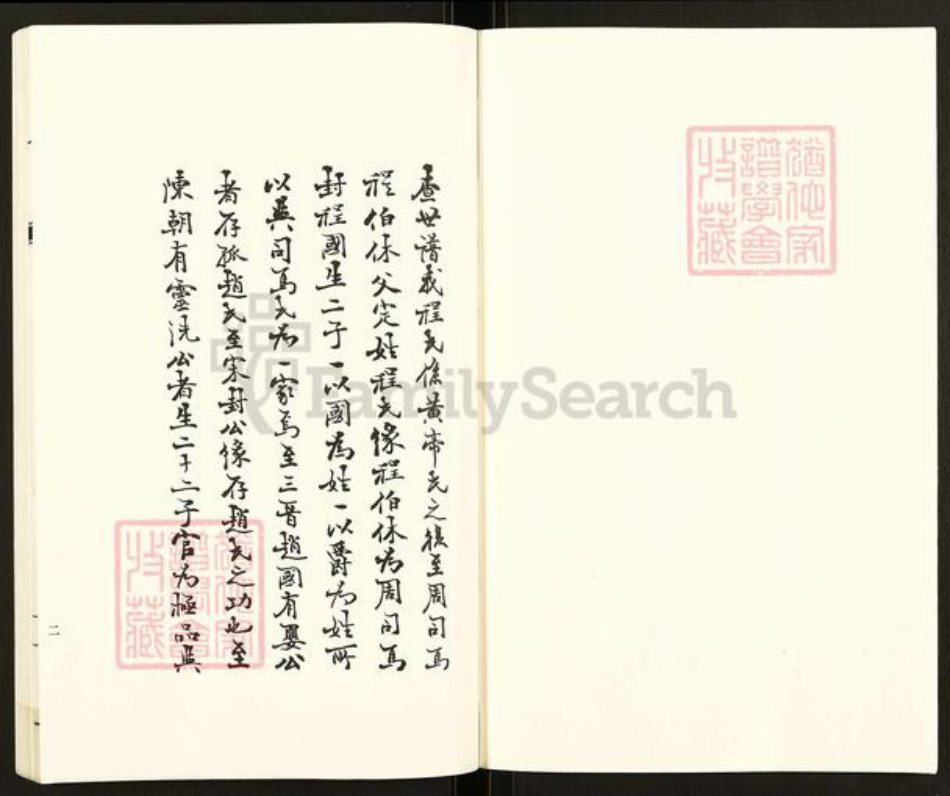 猶他家
譜學會
收藏
查世譜我程氏係黃帝氏之後至周司馬
程伯休父定姓程氏緣程伯休為周司馬
封程國生二子一以國為姓一以爵為姓所
以與司馬氏為一家焉至三晋趙國有嬰公
者存孤趙氏至宋封公緣存趙氏之功也至
陳朝有靈洗公者生二十二子官為極品與
二
猶他家
譜學會
收藏
FamilySearch